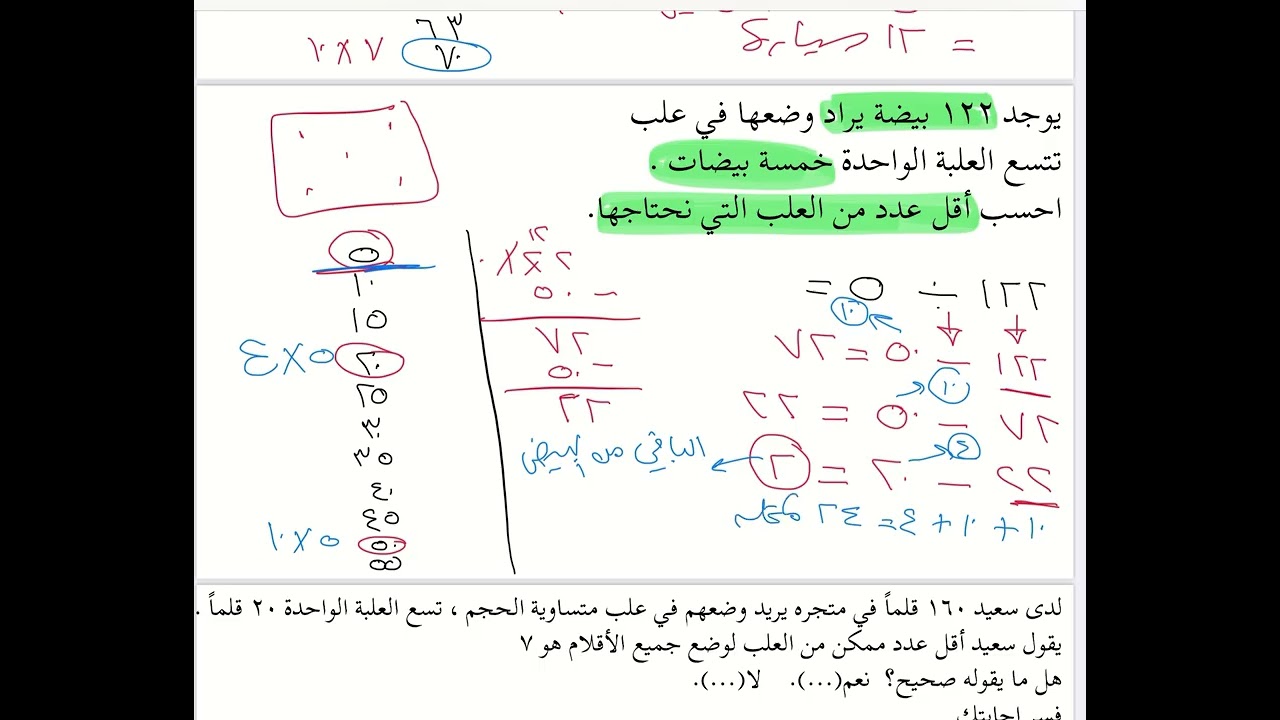 ٦٣
١٠ × ٧ ٧٠
= ١٢ سيارة
يوجد ١٢٢ بيضة يراد وضعها في علب
تتسع العلبة الواحدة خمسة بيضات .
احسب أقل عدد من العلب التي نحتاجها.
١٢٢ ÷ ٥ =
١٠
١٢٢ − ٥٠ = ٧٢
١٠
٧٢ − ٥٠ = ٢٢
٤
٢٢ − ٢٠ = ٢
الباقي من البيض
١٠ + ١٠ + ٤ = ٢٤
١٢
١٢٢
٥٠ −
٧٢
٥٠ −
٢٢
٥
١٠
١٥
٤ × ٥ ٢٠
٢٥
٣٠
٣٥
٤٠
٤٥
١٠ × ٥ ٥٠
٥٥
لدى سعيد ١٦٠ قلماً في متجره يريد وضعهم في علب متساوية الحجم ، تسع العلبة الواحدة ٢٠ قلماً .
يقول سعيد أقل عدد ممكن من العلب لوضع جميع الأقلام هو ٧
هل ما يقوله صحيح؟ نعم(...). لا(...).
فسر إجابتك